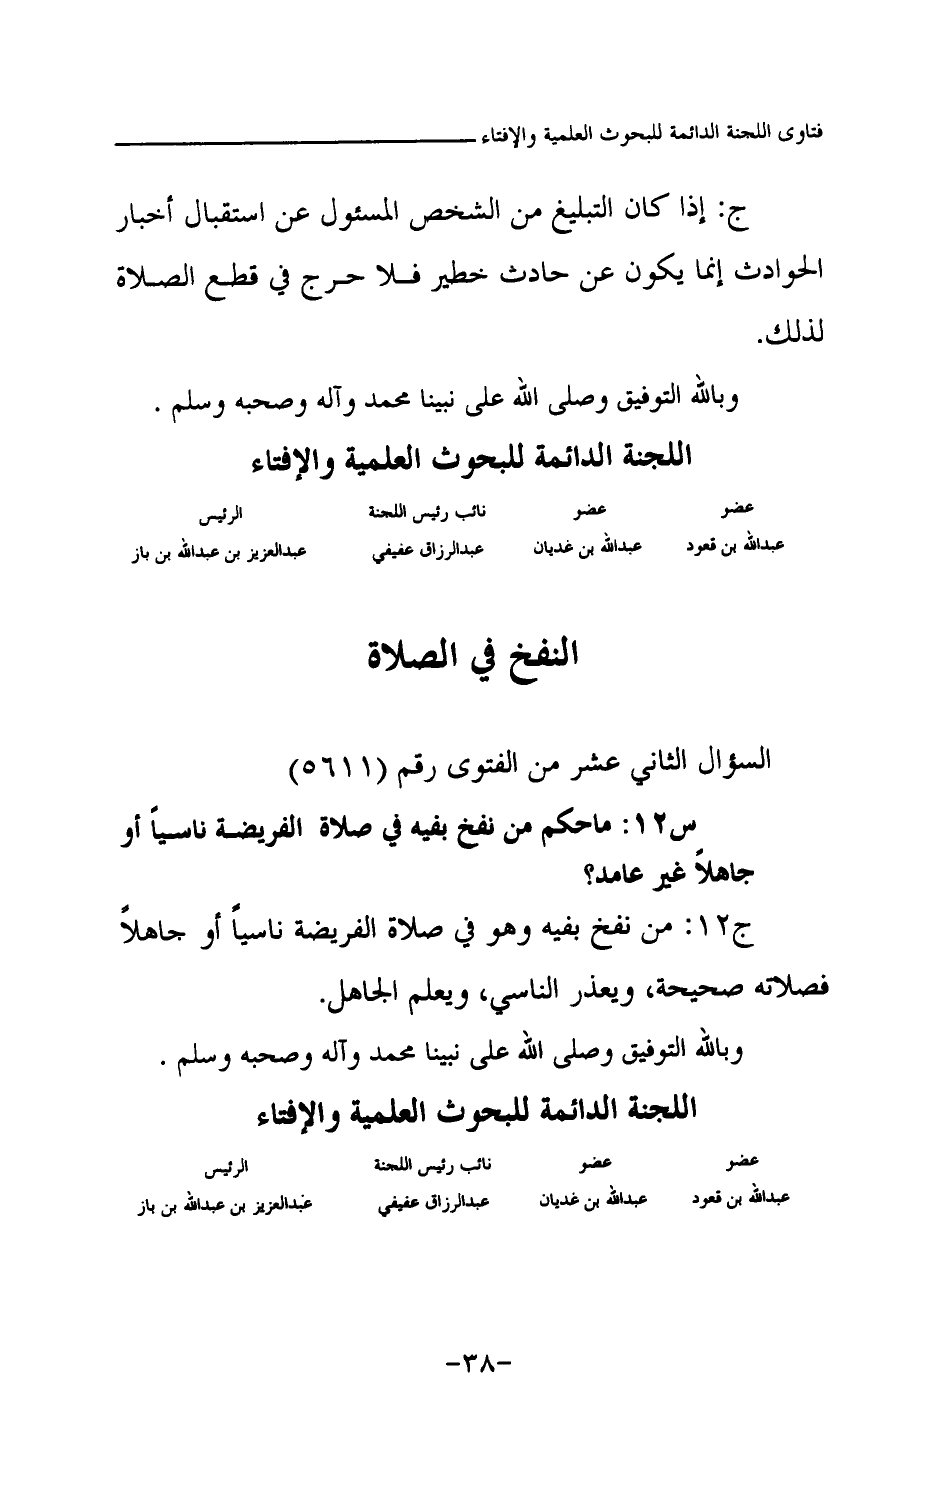 فتاوى اللجنة الدائمة للبحوث العلمية والإفتاء
ج: إذا كان التبليغ من الشخص المسئول عن استقبال أخبار
الحوادث إنما يكون عن حادث خطير فلا حرج في قطع الصلاة
لذلك.
وبالله التوفيق وصلى الله على نبينا محمد وآله وصحبه وسلم .
اللجنة الدائمة للبحوث العلمية والإفتاء
عضو عضو نائب رئيس اللجنة الرئيس
عبدالله بن قعود عبدالله بن غديان عبدالرزاق عفيفي عبدالعزيز بن عبدالله بن باز
النفخ في الصلاة
السؤال الثاني عشر من الفتوى رقم (٥٦١١)
س١٢: ماحكم من نفخ بفيه في صلاة الفريضة ناسياً أو
جاهلاً غير عامد؟
ج١٢: من نفخ بفيه وهو في صلاة الفريضة ناسياً أو جاهلاً
فصلاته صحيحة، ويعذر الناسي، ويعلم الجاهل.
وبالله التوفيق وصلى الله على نبينا محمد وآله وصحبه وسلم .
اللجنة الدائمة للبحوث العلمية والإفتاء
عضو عضو نائب رئيس اللجنة الرئيس
عبدالله بن قعود عبدالله بن غديان عبدالرزاق عفيفي عبدالعزيز بن عبدالله بن باز
-٣٨-